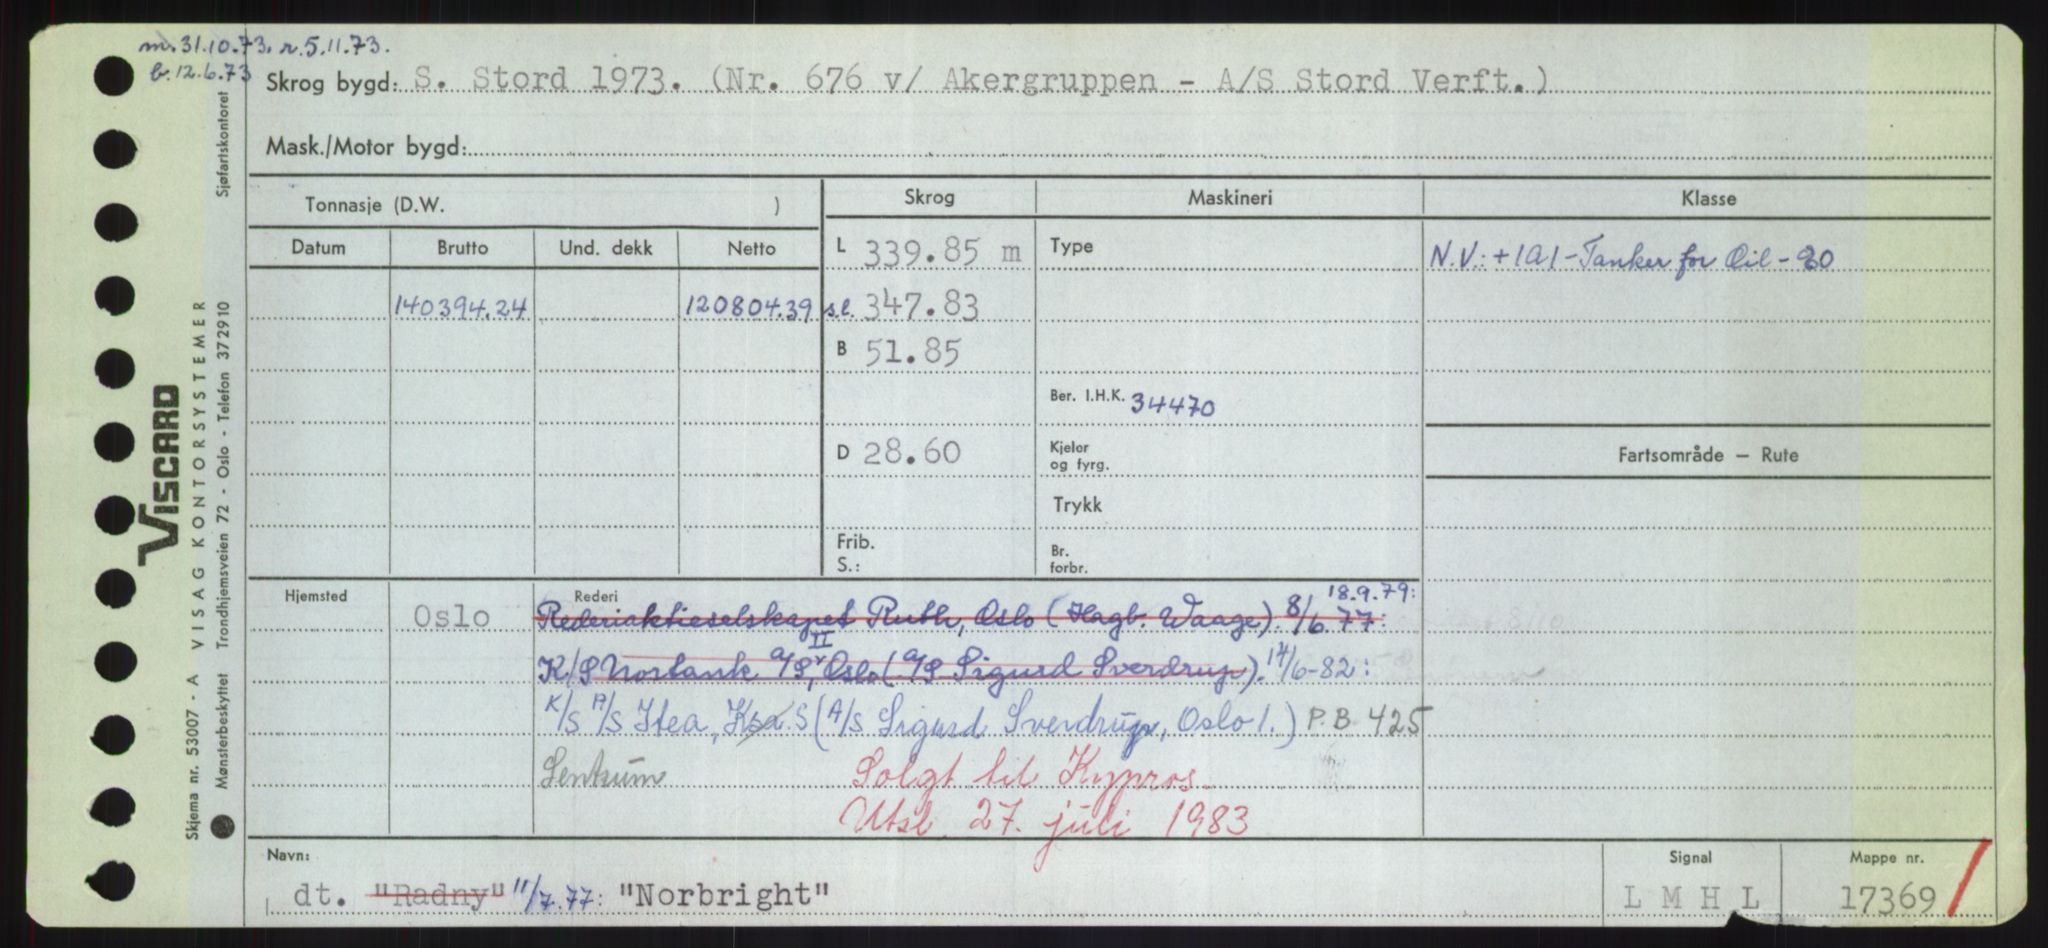 m. 31.10.73. r. 5.11.73.
b. 12.6.73
Skrog bygd: S. Stord 1973. (Nr. 676 v/ Akergruppen - A/S Stord Verft.)
Mask./Motor bygd:
Tonnasje (D.W. )
Skrog
Maskineri
Klasse
Datum
Brutto
Und. dekk
Netto
L 339.85 m
Type
N.V.: +1A1 - Tanker for Oil - 20
140394.24
120804.39
s.l. 347.83
B 51.85
Ber. I.H.K. 34470
D 28.60
Kjeler
og fyrg.
Fartsområde — Rute
Trykk
Frib.
S.:
Br.
forbr.
Hjemsted
Oslo
Rederi
18.9.79:
Rederiaktieselskapet Ruth, Oslo (Hagb. Waage). 8/6.77:
II
K/S Norbank A/S, Oslo (A/S Sigurd Sverdrup). 14/6-82:
K/S A/S Itea, Ksa. S (A/S Sigurd Sverdrup, Oslo 1.) P.B 425
Sentrum
Solgt til Kypros.
Utsl. 27. juli 1983
Navn:
dt. "Radny" 11/7.77: "Norbright"
Signal
L M H L
Mappe nr.
17369
Sjøfartskontoret
VISCARD
VISAG KONTORSYSTEMER
Trondhjemsveien 72 - Oslo - Telefon 37 29 10
Skjema nr. 53007 - A
Mønsterbeskyttet